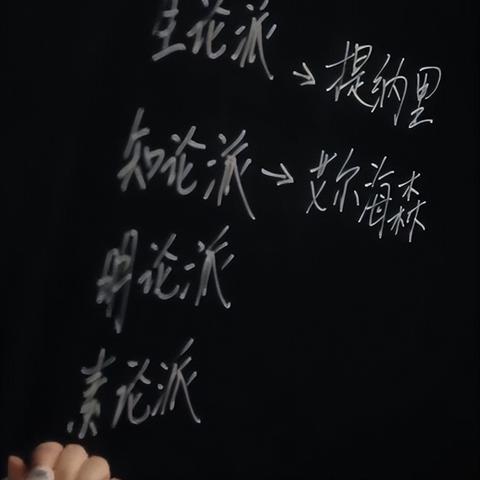 生论派→提纳里
知论派→艾尔海森
明论派
素论派